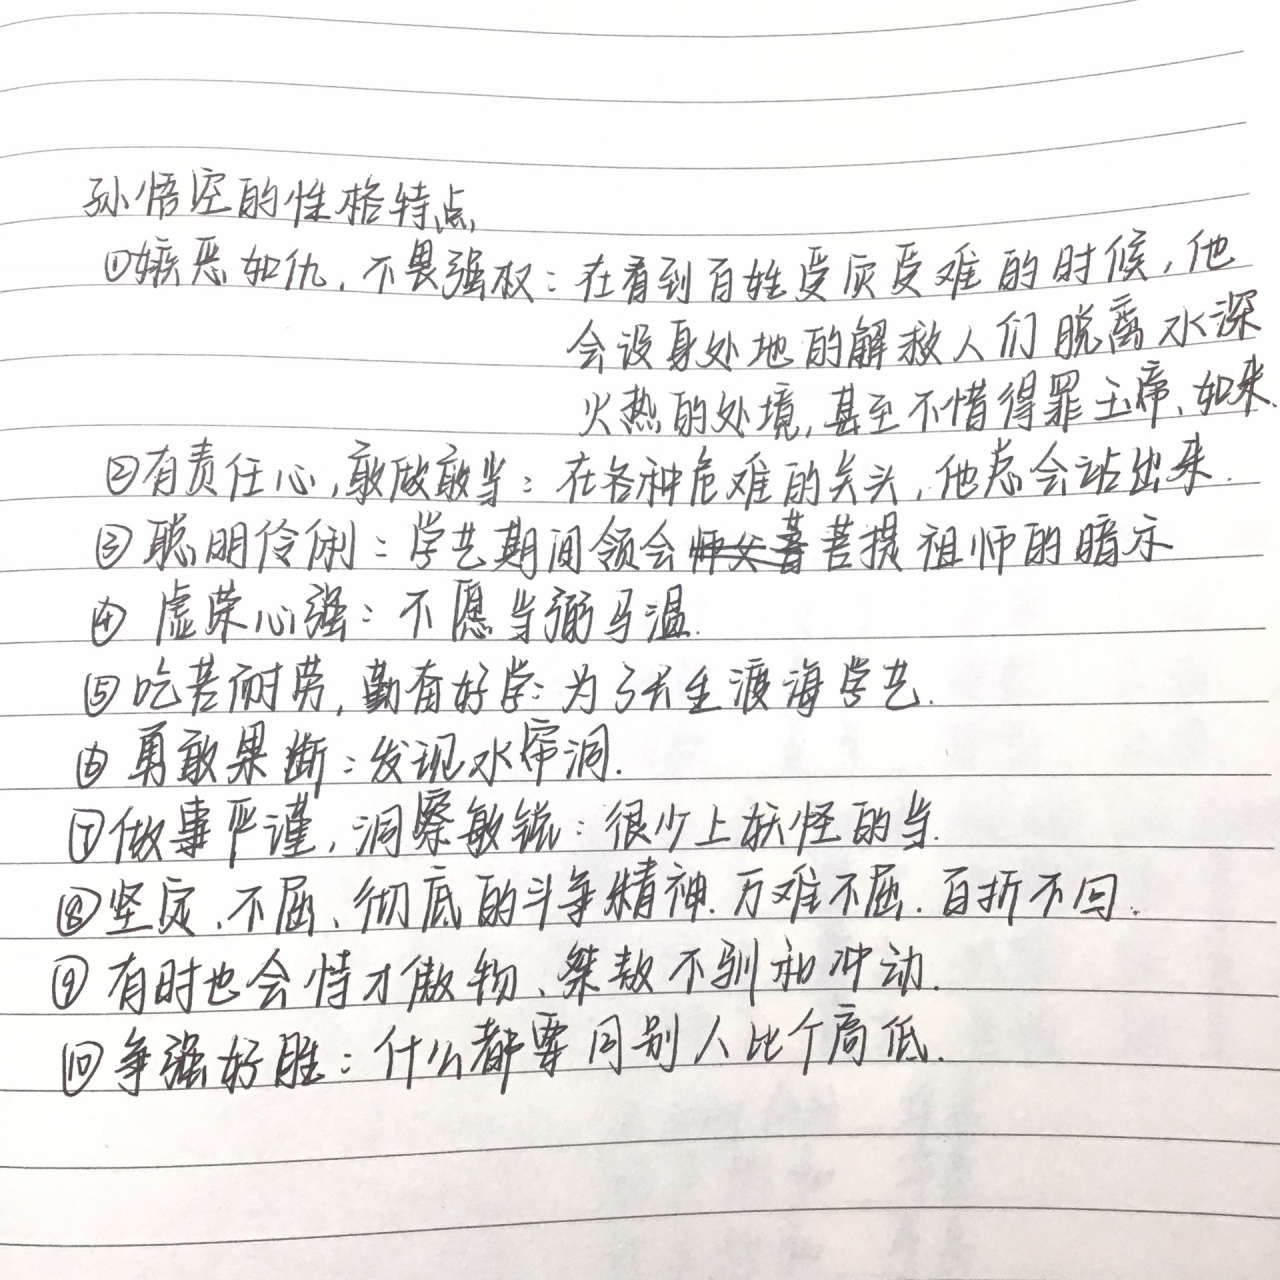 孙悟空的性格特点
①嫉恶如仇、不畏强权：在看到百姓受灾受难的时候，他
会设身处地的解救人们脱离水深
火热的处境，甚至不惜得罪玉帝、如来.
②有责任心，敢做敢当：在各种危难的关头，他总会站出来.
③聪明伶俐：学艺期间领会师父菩菩提祖师的暗示
④虚荣心强：不愿当弼马温.
⑤吃苦耐劳，勤奋好学：为了长生渡海学艺.
⑥勇敢果断：发现水帘洞.
⑦做事严谨，洞察敏锐：很少上妖怪的当.
⑧坚定、不屈、彻底的斗争精神.万难不屈.百折不回.
⑨有时也会恃才傲物、桀骜不驯和冲动.
⑩争强好胜：什么都要同别人比个高低.